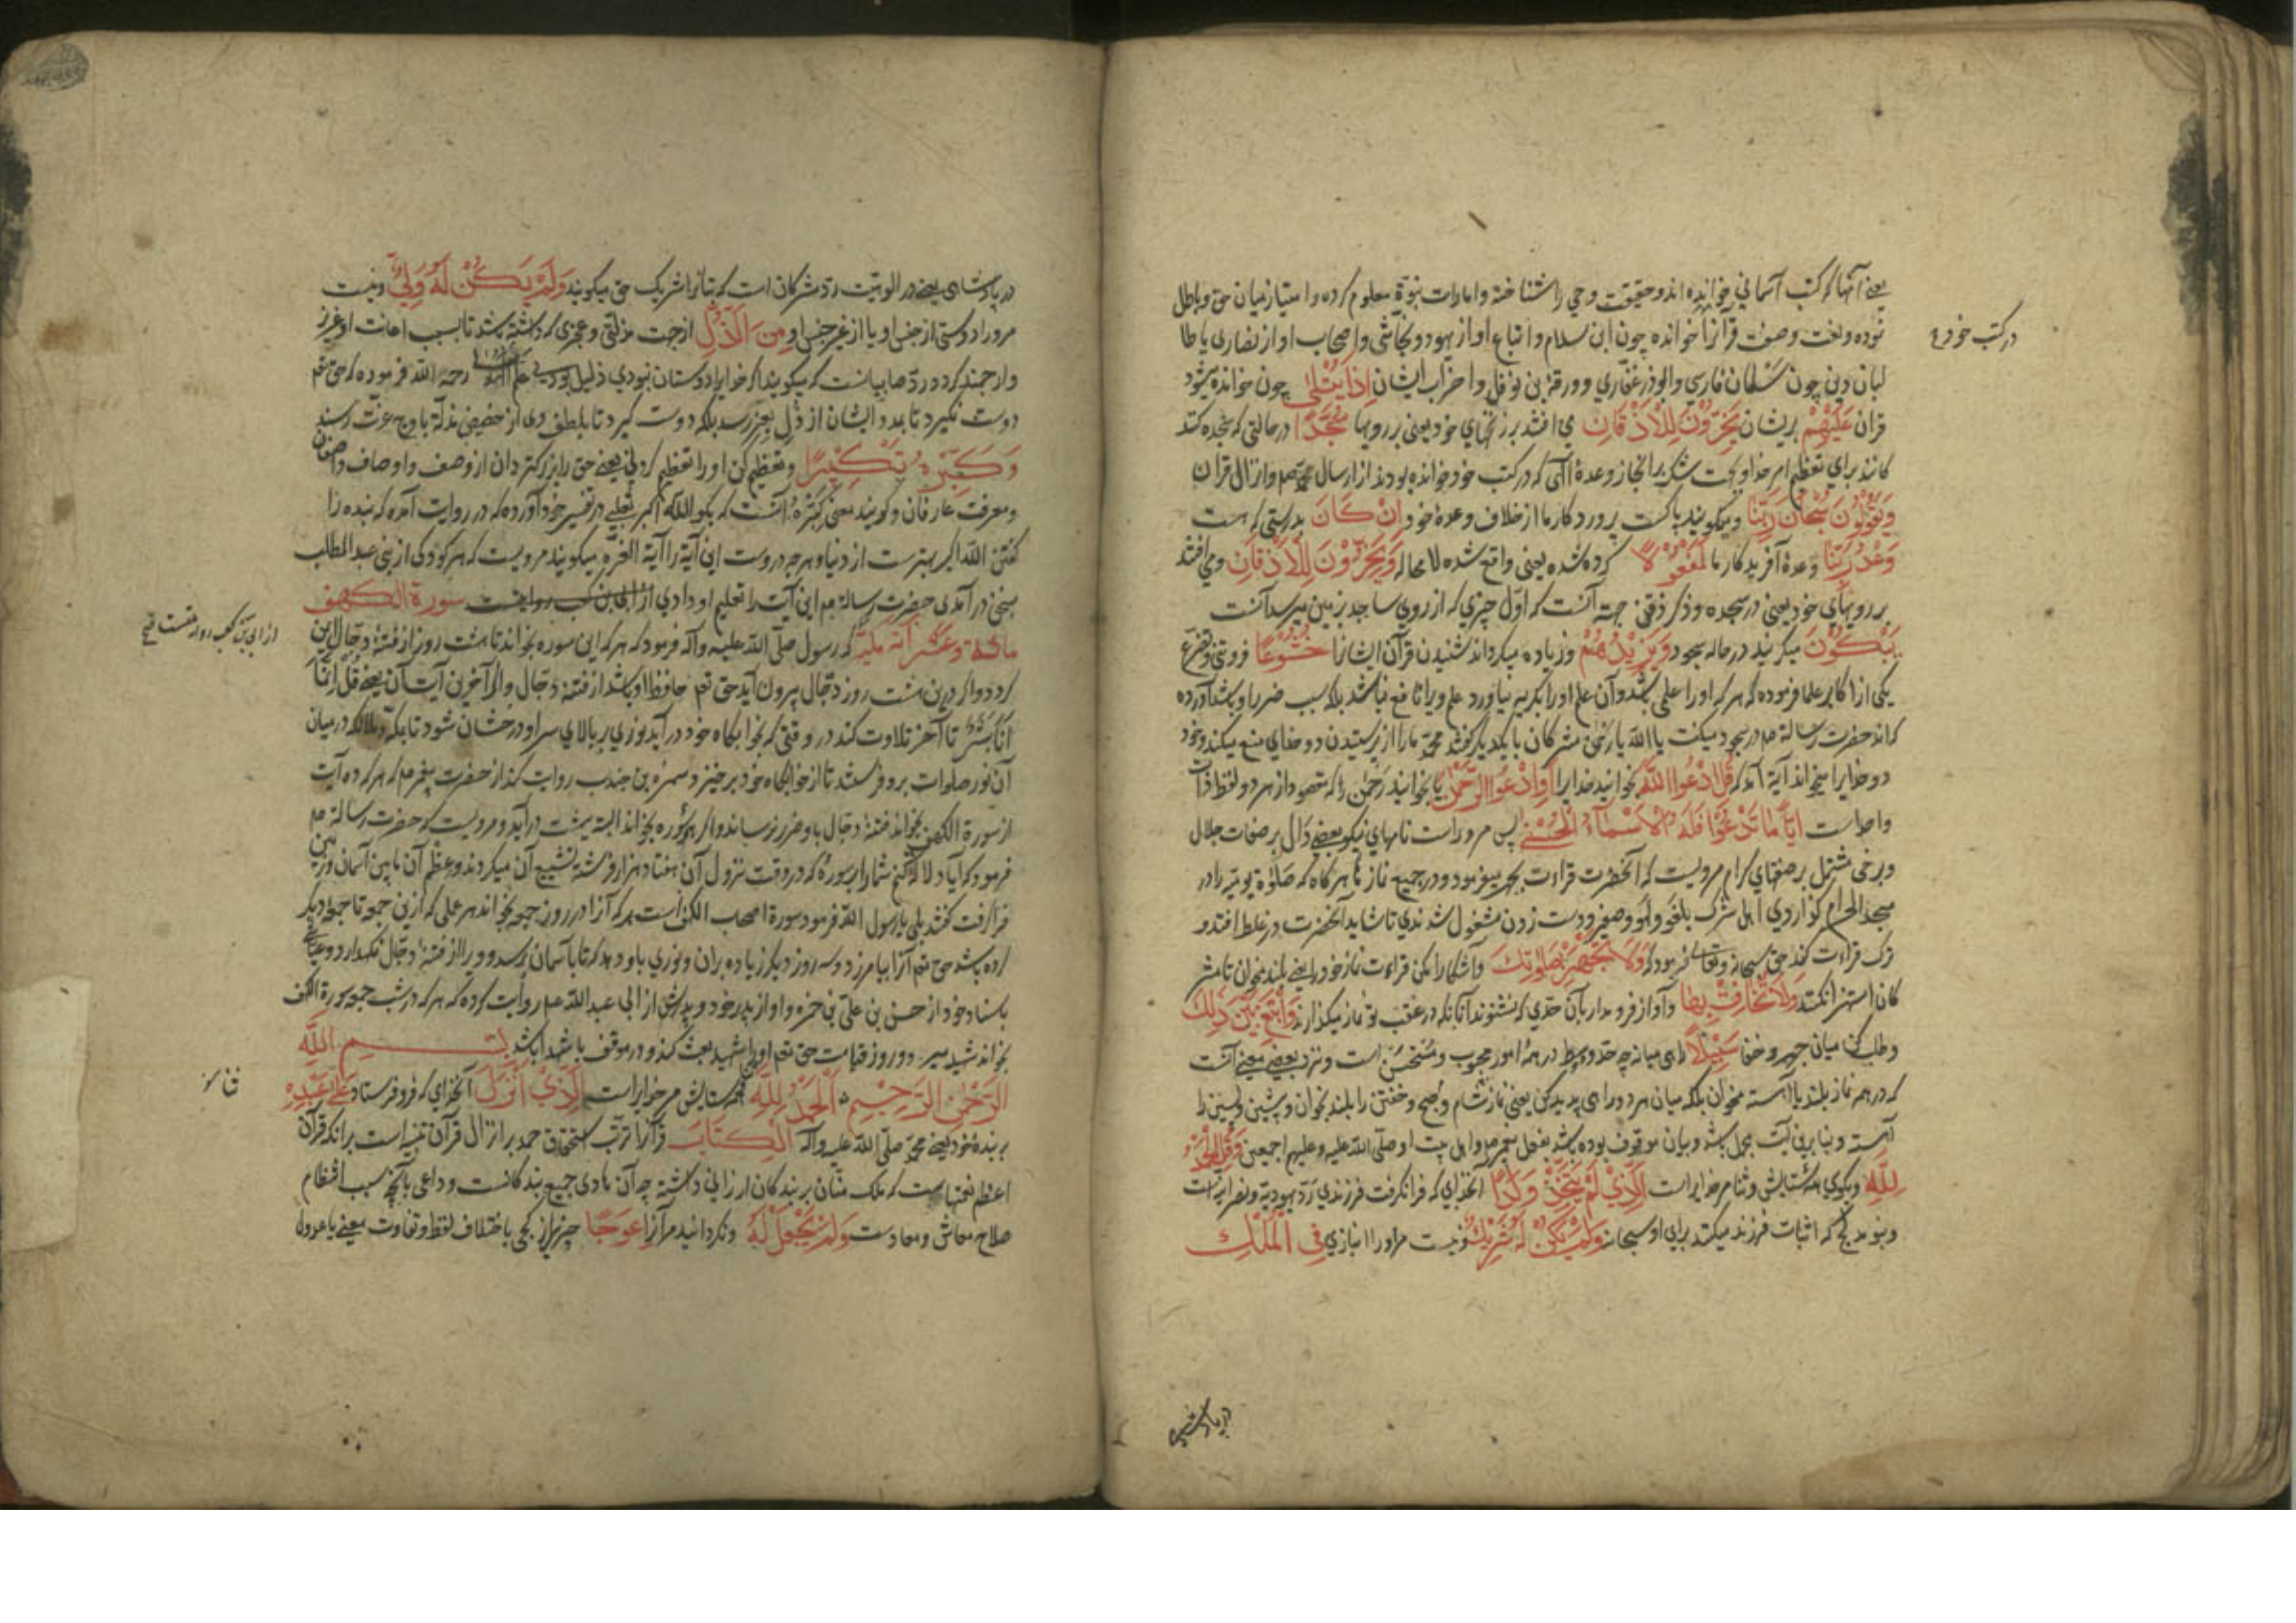 یعنی آنها که کتب آسمانی خوانده اند و حقیقت وحی را شناخته و امارات نبوة معلوم کرده و امتیاز میان حق و باطل
در کتب خود
نموده و نعت و صفت قرآنرا خوانده چون ابن سلام و اتباع او از یهود و نجاشی و اصحاب او از نصاری یا طا
لبان دین چون سلمان فارسی و ابوذر غفاری و ورقة بن نوفل و احزاب ایشان اِذَا يُتْلٰى چون خوانده میشود
قران عَلَيْهِمْ بریشان يَخِرُّوْنَ لِلْاَذْقَانِ می افتند بر زنخهای خود یعنی بر رویها سُجَّدًا در حالتی که سجده کنند
کانند برای تعظیم امر خدا و بجهت شکر بر انجاز وعدۀ الهی که در کتب خود خوانده بودند از ارسال محمد صم و انزال قران
وَيَقُوْلُوْنَ سُبْحَانَ رَبِّنَا و میگویند پاکست پروردکار ما از خلاف وعدۀ خود اِنْ كَانَ بدرستی که هست
وَعْدُ رَبِّنَا وعدۀ آفریدکار ما لَمَفْعُوْلًا کرده شده یعنی واقع شده لا محاله وَيَخِرُّوْنَ لِلْاَذْقَانِ و می افتند
بر رویهای خود یعنی در سجده و ذکر ذقن جهة آنست که اول چیزی که از روی ساجد بزمین میرسد آنست
يَبْكُوْنَ میکریند در حاله سجود وَيَزِيْدُهُمْ و زیاده میکرداند شنیدن قرآن ایشانرا خُشُوْعًا فروتنی و تضرع
یکی از اکابر علما فرموده که هر که او را علمی باشد و آن علم او را بکریه نیاورد علم ویرا نافع نباشد بلکه سبب ضرر او باشد آورده
که اند حضرت رسالة صم در سجود میکفت یا الله یا رحمن مشرکان با یکدیکر کفتند محمد ما را از پرستیدن دو خدای منع میکند و خود
دو خدایرا میخواند آیة آمد که قُلِ ادْعُوا اللهَ بخوانید خدایرا اَوِ ادْعُوا الرَّحْمٰنَ یا بخوانید رحمن را که مقصود از هر دو لفظ ذات
واحد است اَيًّا مَا تَدْعُوْا فَلَهُ الْاَسْمَآءُ الْحُسْنٰى پس مر وراست نامهای نیکو بعضی دال بر صفات جلال
و برخی مشتمل بر صفتهای کرام مرویست که آنحضرت قراءت بجهر میفرمود و در جمیع نماز ها هرکاه که صلوة یومیه را در
مسجد الحرام کزاردی اهل شرک بلغو و لهو و صفیر و دست زدن مشغول شدندی تا شاید آنحضرت در غلط افتد و
ترک قراءت کند حق سبحانه و تعالی فرمود که وَلَا تَجْهَرْ بِصَلٰوتِكَ و آشکارا مکن قراءت نماز خود را یعنی بلند مخوان تا مشر
کان استهزا نکنند وَلَا تُخَافِتْ بِهَا و آواز فرو مدار بآن حدی که نشنوند آنانکه در عقب تو نماز میکزارند وَابْتَغِ بَيْنَ ذٰلِكَ
و طلب کن میان جهر و خفا سَبِيْلًا راهی میانه چه حد وسط در همۀ امور محبوب و مستحسن است و نزد بعضی معنی آنست
که در همه نماز بلند یا آهسته مخوان بلکه میان هر دو راهی پدید کن یعنی نماز شام و صبح و خفتن را بلند بخوان و پیشین و پسین را
آهسته و بنا برین آیت مجمل باشد و بیان موقوف بوده باشد بفعل پیغمبر صم و اهل بیت او صلی الله علیه و علیهم اجمعین وَقُلِ الْحَمْدُ
لِلّٰهِ و بکوی همه ستایش و ثنا مر خدایراست الَّذِيْ لَمْ يَتَّخِذْ وَلَدًا آنخدای که فرا نکرفت فرزندی رد یهودیة و نصرانیة است
و بنو مدلج که اثبات فرزند میکنند برای او سبحانه وَلَمْ يَكُنْ لَهُ شَرِيْكٌ و نیست مر او را انبازی فِي الْمُلْكِ
در پادشاهی
در پادشاهی یعنی در الوهیت رد مشرکان است که بتانرا شریک حق میکویند وَلَمْ يَكُنْ لَهُ وَلِيٌّ و نیست
مرورا دوستی از جنس او یا از غیر جنس او مِنَ الذُّلِّ از جهت مذلتی و عجزی که داشته باشد تا بسبب اعانت او عزیز
و ارجمند کردد رد صابیانست که میکویند اکر خدایرا دوستان نبودی ذلیل بودی علم الهدی رحمه الله فرموده که حق تعم
دوست نکیرد تا بمدد ایشان از ذل بعز رسد بلکه دوست کیرد تا بلطف وی از حضیض مذلة باوج عزت رسند
وَكَبِّرْهُ تَكْبِيْرًا و تعظیم کن او را تعظیم کردنی یعنی حق را بزرکتر دان از وصف و اوصاف واصفان
و معرفت عارفان و کویند معنی کَبِّرْهُ آنست که بکو الله اکبر ثعلبی در تفسیر خود آورده که در روایت آمده که بنده را
کفتن الله اکبر بهترست از دنیا و هر چه دروست این آیة را آیة العزة میکویند مرویست که هر کودکی از بنی عبد المطلب
بسخن درآمدی حضرت رسالة صم این آیت را تعلیم او دادی از ابی بن کعب روایتست سورة الكهف
از ابی بن کعب روایتست صح
مائة وعشر آية مكية که رسول صلی الله علیه و آله فرمود که هر که این سوره بخواند تا هشت روز از فتنۀ دجال ایمن
کردد و اکر درین هشت روز دجال بیرون آید حق تعم حافظ او باشد از فتنۀ دجال و اکر آخرین آیت آن یعنی قُلْ اِنَّمَا
اَنَا بَشَرٌ تا آخر تلاوت کند در وقتی که بخوابکاه خود درآید نوری بر بالای سر او درخشان شود تا بمکه و ملائکه در میان
آن نور صلوات برو فرستند تا از خوابکاه خود برخیزد سمرة بن جندب روایت کند از حضرت پیغمبر صم که هر که ده آیت
از سورة الکهف بخواند فتنۀ دجال باو ضرر نرساند و اکر همۀ سوره بخواند البته ببهشت درآید و مرویست که حضرت رسالة صم
فرمود که آیا دلالة کنم شما را بسورۀ که در وقت نزول آن هفتاد هزار فرشته تشییع آن میکردند و عظم آن ما بین آسمان و زمین
فرا کرفت کفتند بلی یا رسول الله فرمود سورة اصحاب الکهف است هر که آنرا در روز جمعه بخواند هر عملی که ازین جمعه تا جمعۀ دیکر
کرده باشد حق تعم آنرا بیامرزد و سه روز دیکر زیاده بران و نوری باو دهد که تا بآسمان برسد و ویرا از فتنۀ دجال نکهدارد و عیاشی
باسناد خود از حسن بن علی بن حمزه و او از پدر خود و پدرش از ابی عبد الله عم روایت کرده که هر که در شب جمعه سورة الکهف
بخواند شهید میرد و روز قیامت حق تعم او را شهید بعث کند و در موقف با شهدا باشد بسم الله
الرَّحْمٰنِ الرَّحِيْمِ اَلْحَمْدُ لِلّٰهِ همه ستایش مر خدایراست الَّذِيْ اَنْزَلَ آنخدای که فرو فرستاد عَلٰى عَبْدِهِ
بر بندۀ خود یعنی محمد صلی الله علیه و آله الْكِتَابَ قرآنرا ترتب استحقاق حمد بر انزال قرآن تنبیه است برانکه قرآن
اعظم نعمتهاست که ملک منان بر بندکان ارزانی داشته چه آن هادی جمیع بندکانست و داعی بآنچه سبب انتظام
صلاح معاش و معادست وَلَمْ يَجْعَلْ لَهُ و نکردانید مر آنرا عِوَجًا چیزی از کجی باختلاف لفظ و تفاوت معنی یا عدول